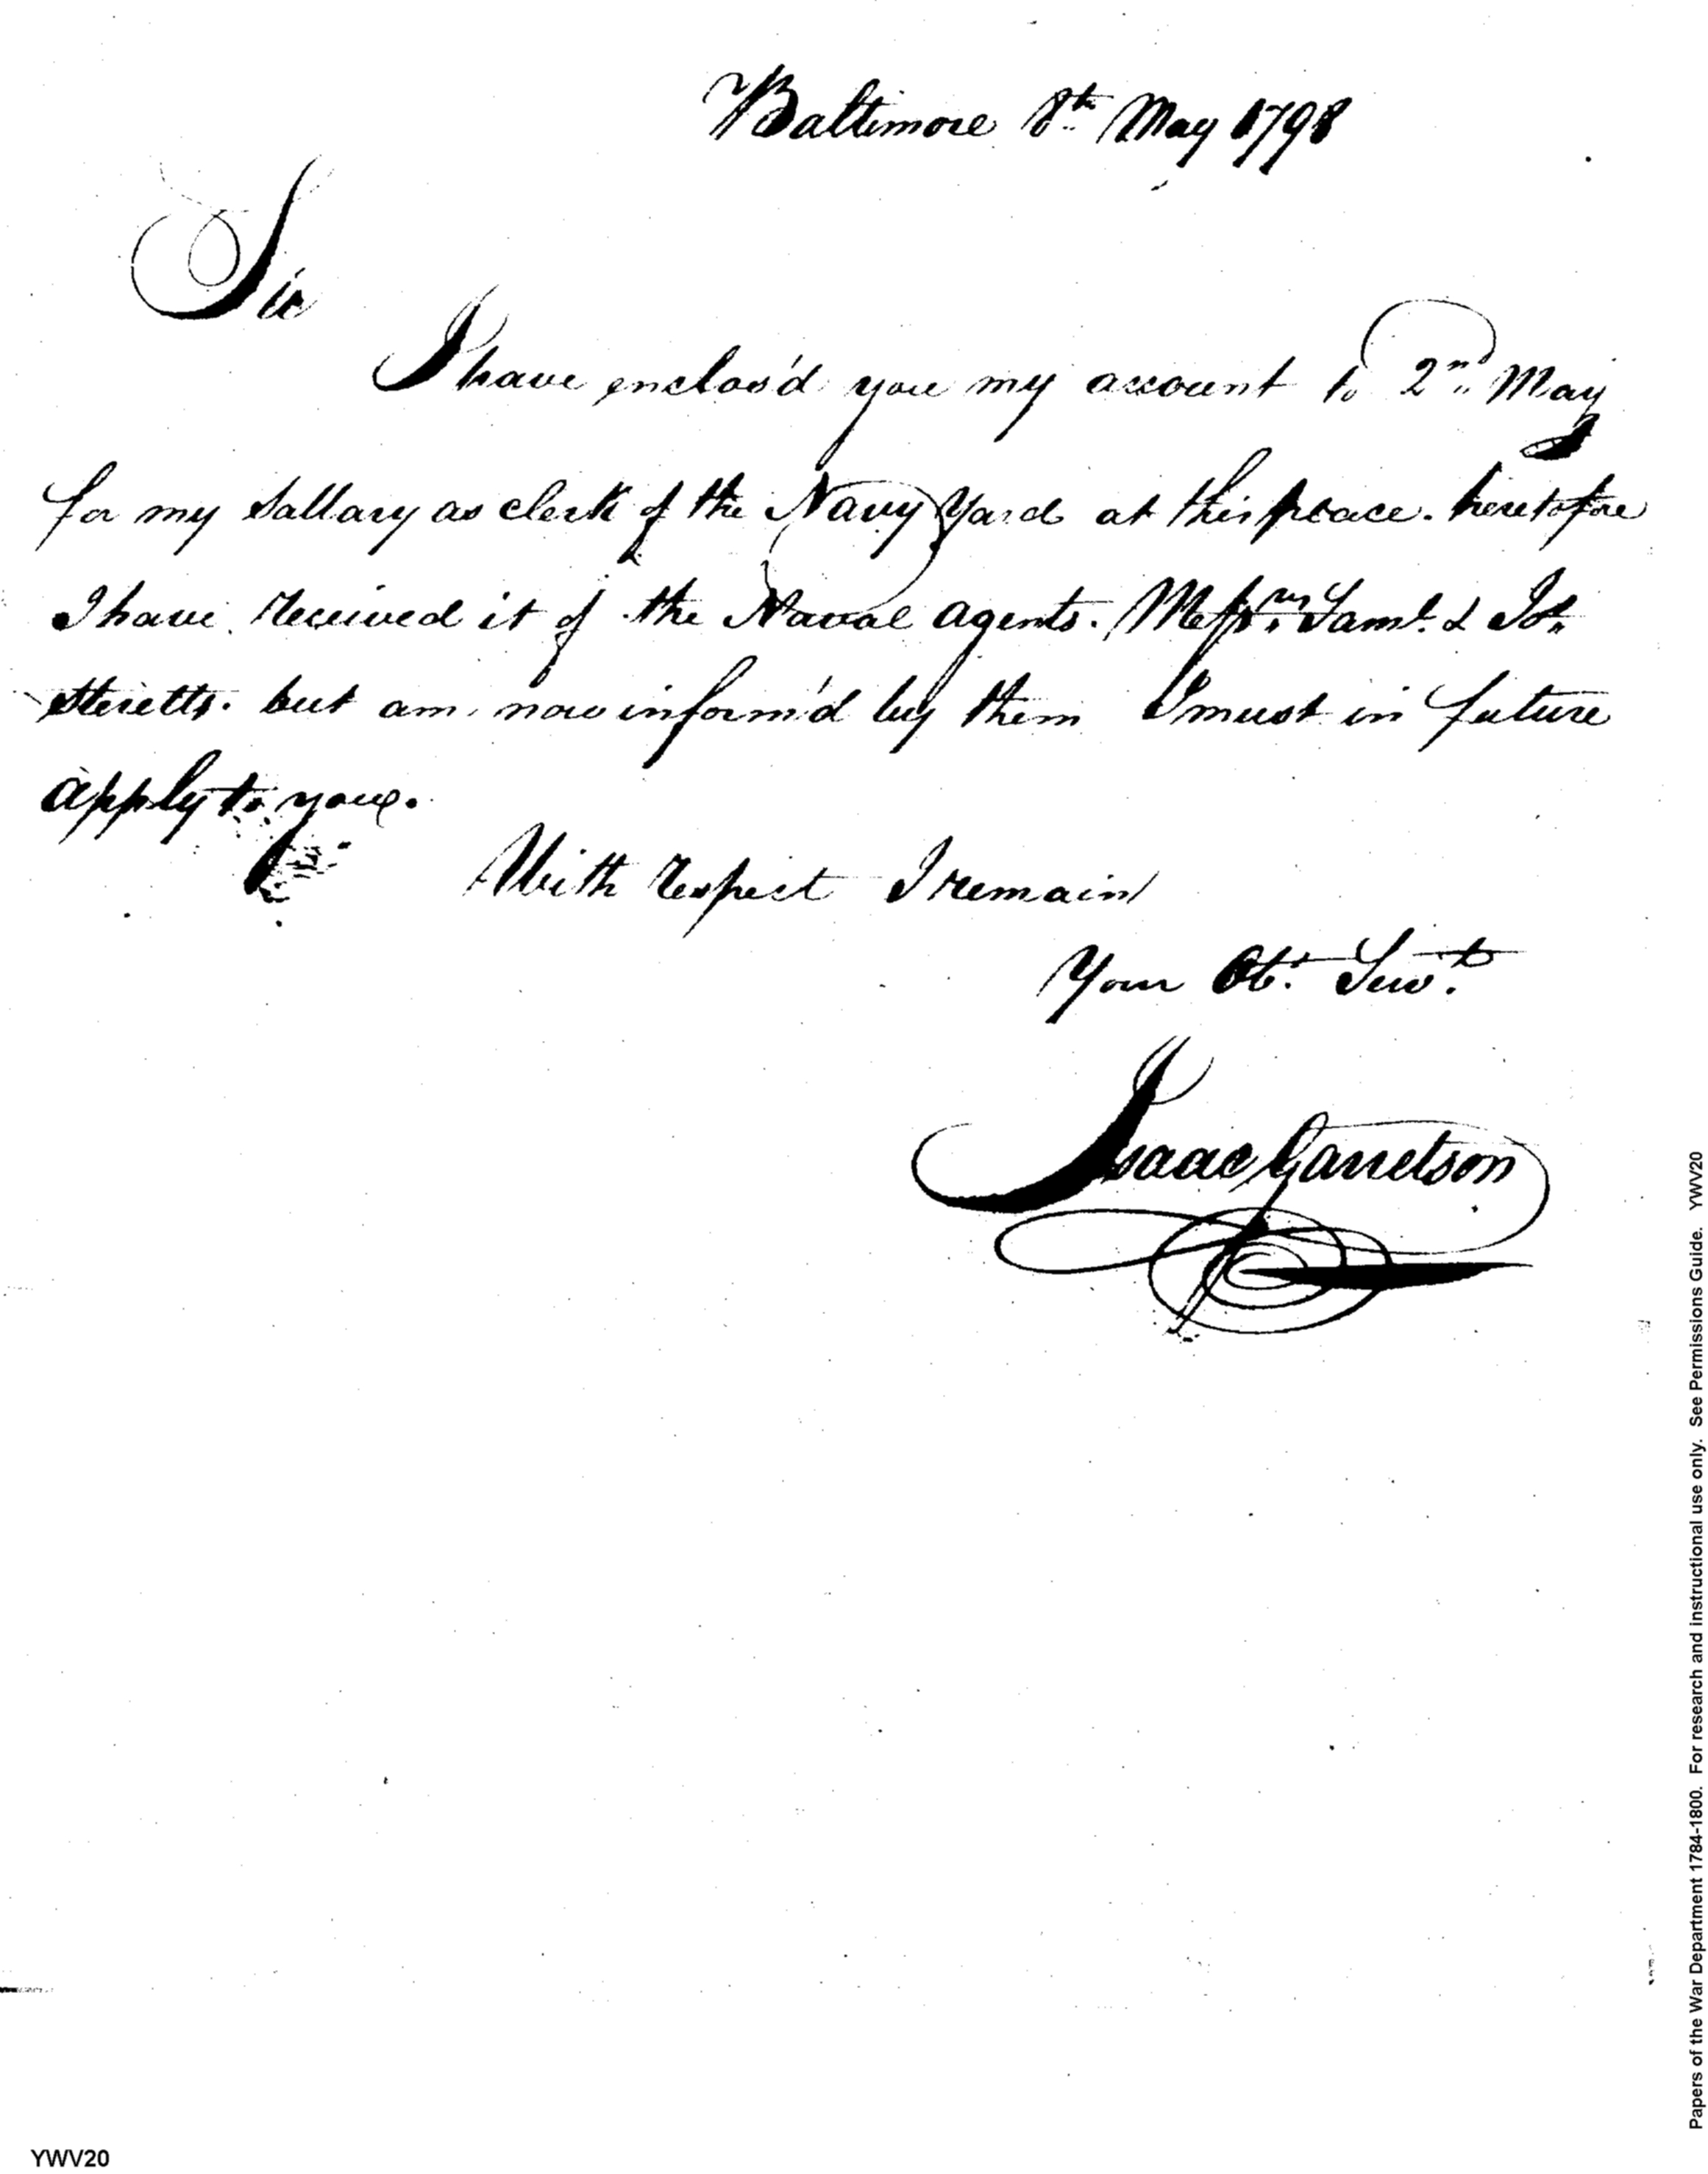 Baltimore 8th May 1798
Sir
I have enclos'd you my account to 2nd May
for my Sallary as clerk of the Navy Yard at this place. heretofore
I have received it of the Naval agents. Messrs. Saml. & Jos.
Steretts. but am now inform'd by them I must in future
apply to you.
With respect I remain
Your Obt. Servt.
Isaac Garretson
Papers of the War Department 1784-1800. For research and instructional use only. See Permissions Guide. YWV20
YWV20